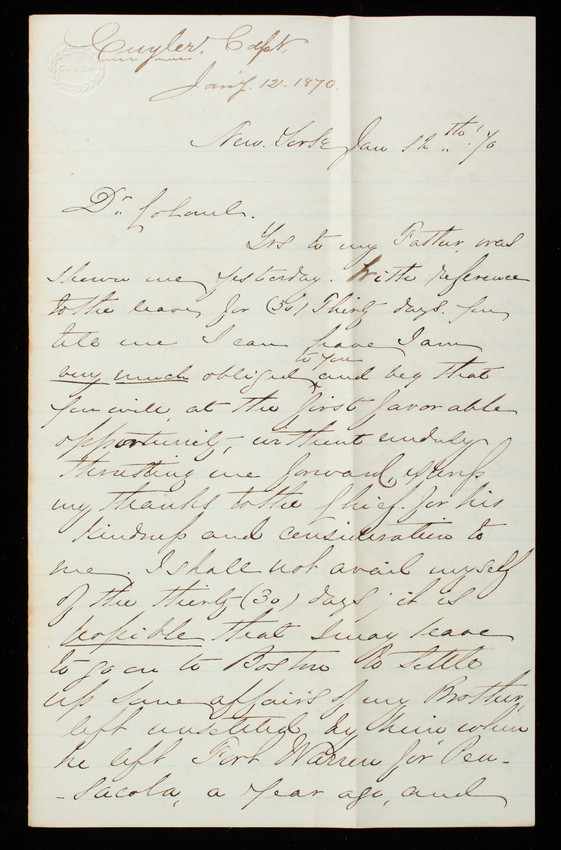 Cuyler. Capt.
Jan'y. 12. 1870.
New. York Jan 12th. '70
Dr. Colonel.
Yrs to my Father, was
shown me yesterday. With reference
to the leave for (30) Thirty days. you
tell me I can have I am
very much obliged to you and beg that
you will at the first favorable
opportunity, without unduly
thrusting me forward, express
my thanks to the Chief. for his
kindness and consideration to
me. I shall not avail myself
of the thirty (30) days it is
possible that I may have
to go on to Boston to settle
up some affairs of my Brother,
left unsettled by him when
he left Fort Warren for Pen-
-sacola, a year ago, and